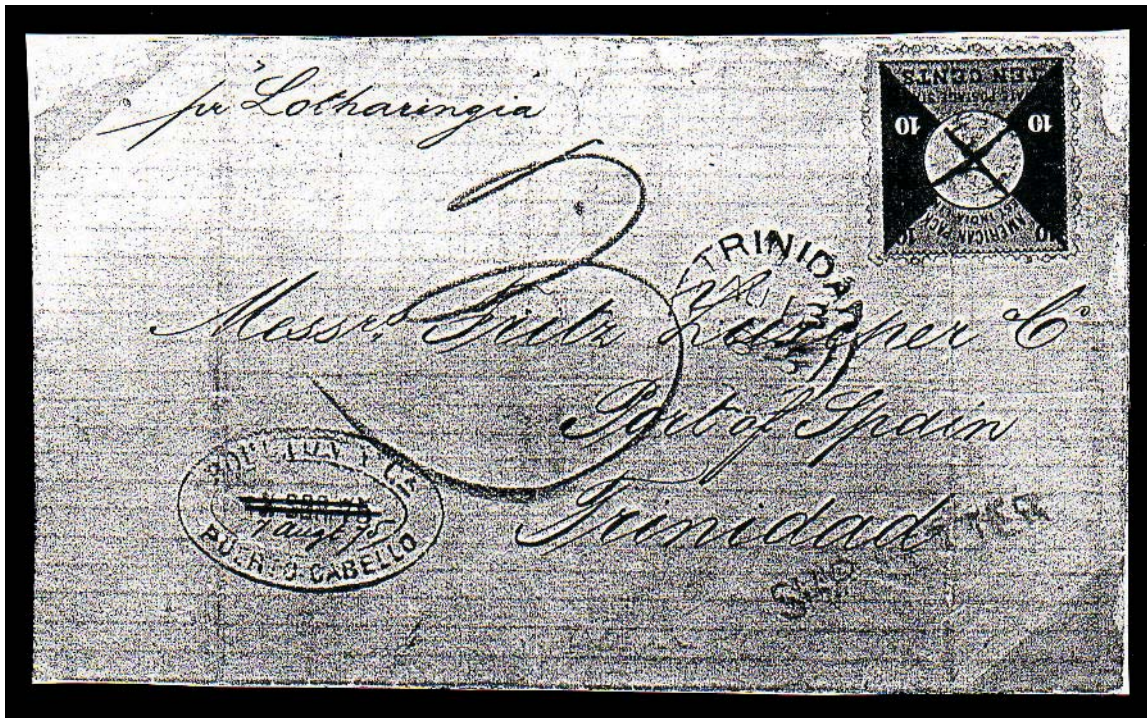 pr Lotharingia
TEN CENTS
10 10
AMERICAN PACK
10 10
TRINIDAD
Messrs. Fritz Zurcher Co
Port of Spain
Trinidad
Y CA
1 Augt 75
PUERTO CABELLO